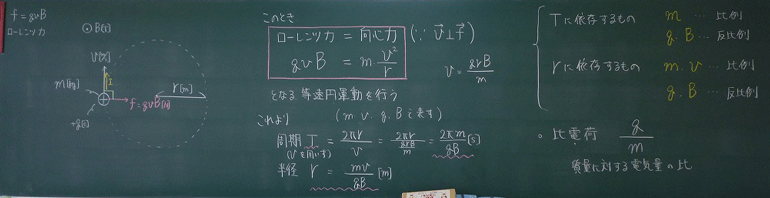 f = qvB
ローレンツ力
⊙ B[T]
v[m/s]
I
m[kg]
+q[C]
f = qvB[N]
r[m]
このとき
ローレンツ力 = 向心力 (∵ v⃗⊥f⃗)
qvB = m v²/r
v = qrB/m
となる 等速円運動を行う
これより (m, v, q, B で表す)
周期 T = 2πr/v = 2πr/(qrB/m) = 2πm/qB [s]
(vを用いず)
半径 r = mv/qB [m]
Tに依存するもの m … 比例
q, B … 反比例
rに依存するもの m, v … 比例
q, B … 反比例
○ 比電荷 q/m
質量に対する電気量の比